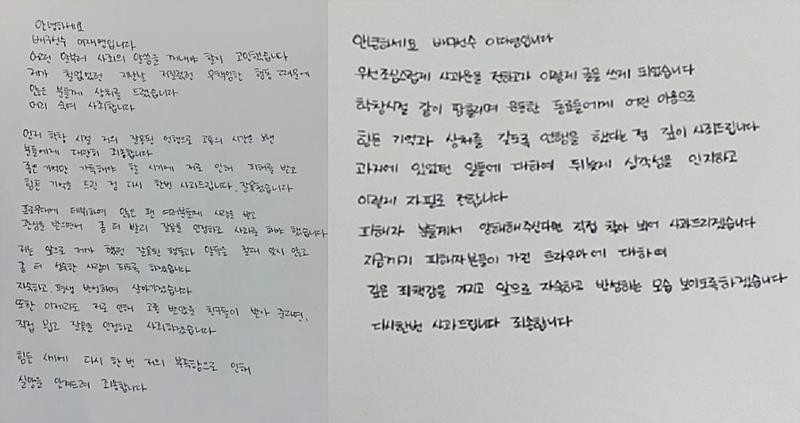 안녕하세요
배구선수 이재영입니다
어떤 말부터 사죄의 말씀을 꺼내야 할지 고민했습니다
제가 철없었던 지난날 저질렀던 무책임한 행동 때문에
많은 분들께 상처를 드렸습니다
머리 숙여 사죄합니다
먼저 학창 시절 저의 잘못된 언행으로 고통의 시간을 보낸
분들에게 대단히 죄송합니다
좋은 기억만 가득해야 할 시기에 저로 인해 피해를 받고
힘든 기억을 드린 점 다시 한번 사과드립니다. 잘못했습니다
프로무대에 데뷔하여 많은 팬 여러분들께 사랑을 받고
관심을 받으면서 좀 더 빨리 잘못을 인정하고 사죄를 해야 했습니다
저는 앞으로 제가 했던 잘못된 행동과 말들을 절대 잊지 않고
좀 더 성숙한 사람이 되도록 하겠습니다
자숙하고, 평생 반성하며 살아가겠습니다
또한 이제라도 저로 인해 고통 받았을 친구들이 받아 준다면,
직접 뵙고 잘못을 인정하고 사죄하겠습니다
힘든 시기에 다시 한 번 저의 부족함으로 인해
실망을 안겨드려 죄송합니다
안녕하세요 배구선수 이다영입니다
우선 조심스럽게 사과문을 전하고자 이렇게 글을 쓰게 되었습니다
학창시절 같이 땀흘리며 운동한 동료들에게 어린 마음으로
힘든 기억과 상처를 갖도록 언행을 했다는 점 깊이 사죄드립니다
과거에 있었던 일들에 대하여 뒤늦게 심각성을 인지하고
이렇게 자필로 전합니다
피해자 분들께서 양해해주신다면 직접 찾아 뵈어 사과드리겠습니다
지금까지 피해자분들이 가진 트라우마에 대하여
깊은 죄책감을 가지고 앞으로 자숙하고 반성하는 모습 보이도록하겠습니다
다시한번 사과드립니다 죄송합니다